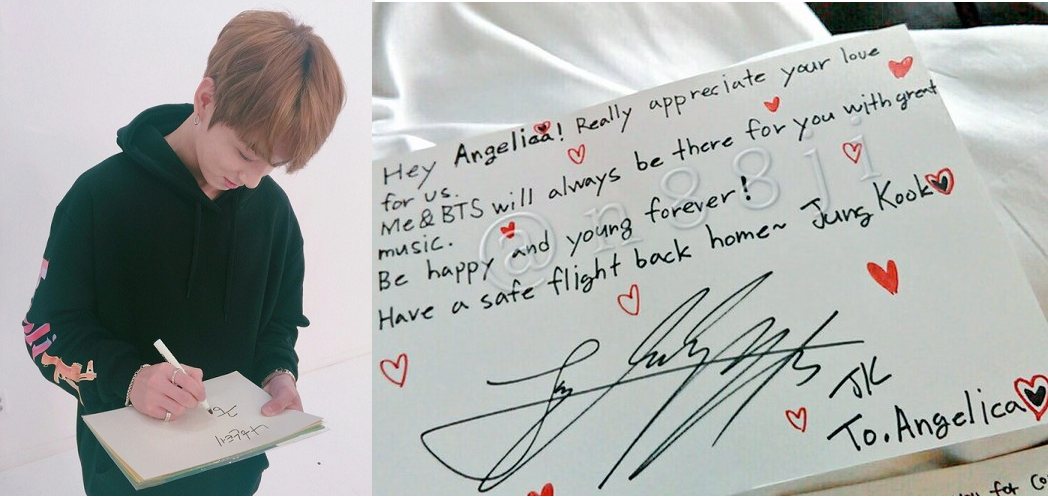 Hey Angelica! Really appreciate your love
for us.
Me&BTS will always be there for you with great
music.
Be happy and young forever!
Have a safe flight back home~ Jung Kook
JK
To. Angelica
@n88ji
for